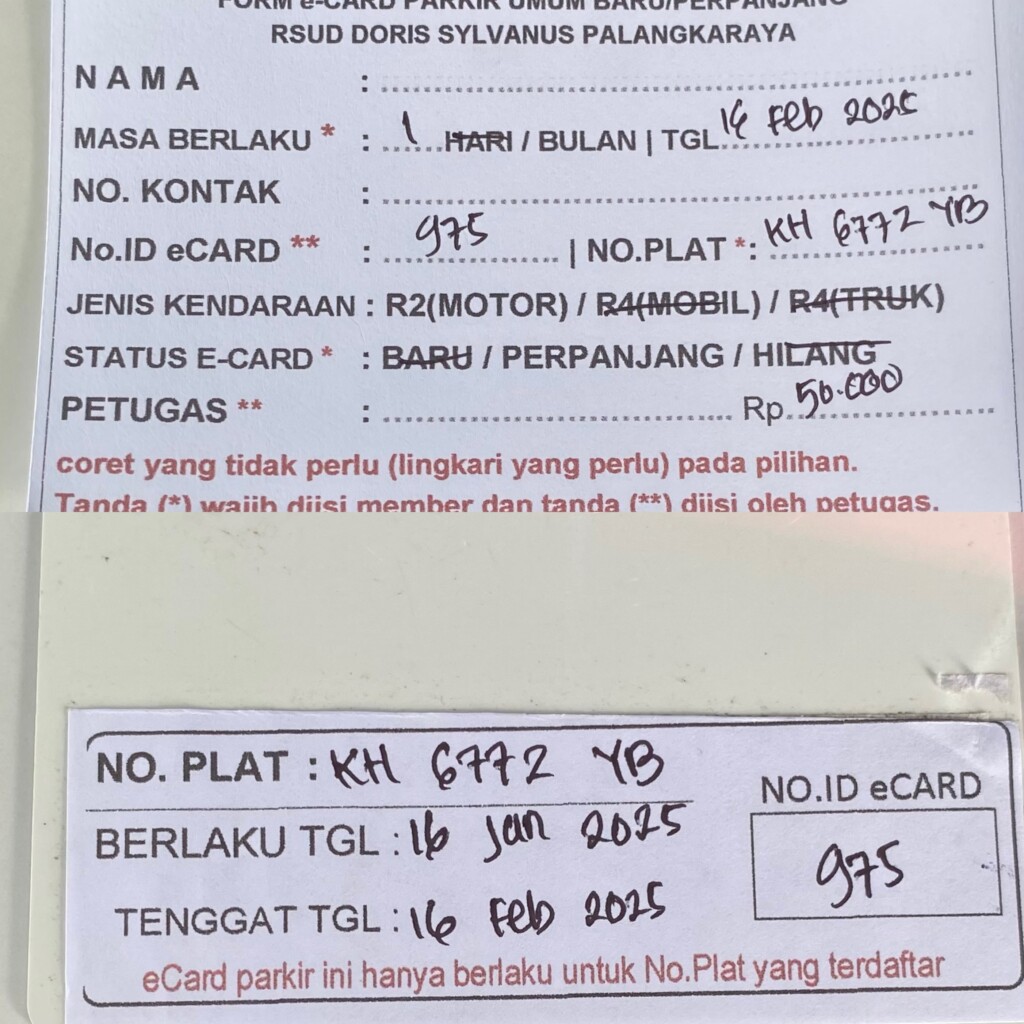 FORM e-CARD PARKIR UMUM BARU/PERPANJANG
RSUD DORIS SYLVANUS PALANGKARAYA
NAMA :
MASA BERLAKU * : 1 HARI / BULAN | TGL 16 Feb 2025
NO. KONTAK :
No.ID eCARD ** : 975 | NO.PLAT *: KH 6772 YB
JENIS KENDARAAN : R2(MOTOR) / R4(MOBIL) / R4(TRUK)
STATUS E-CARD * : BARU / PERPANJANG / HILANG
PETUGAS ** : Rp 50.000
coret yang tidak perlu (lingkari yang perlu) pada pilihan.
Tanda (*) wajib diisi member dan tanda (**) diisi oleh petugas.
NO. PLAT : KH 6772 YB
BERLAKU TGL : 16 Jan 2025
TENGGAT TGL : 16 Feb 2025
NO.ID eCARD
975
eCard parkir ini hanya berlaku untuk No.Plat yang terdaftar